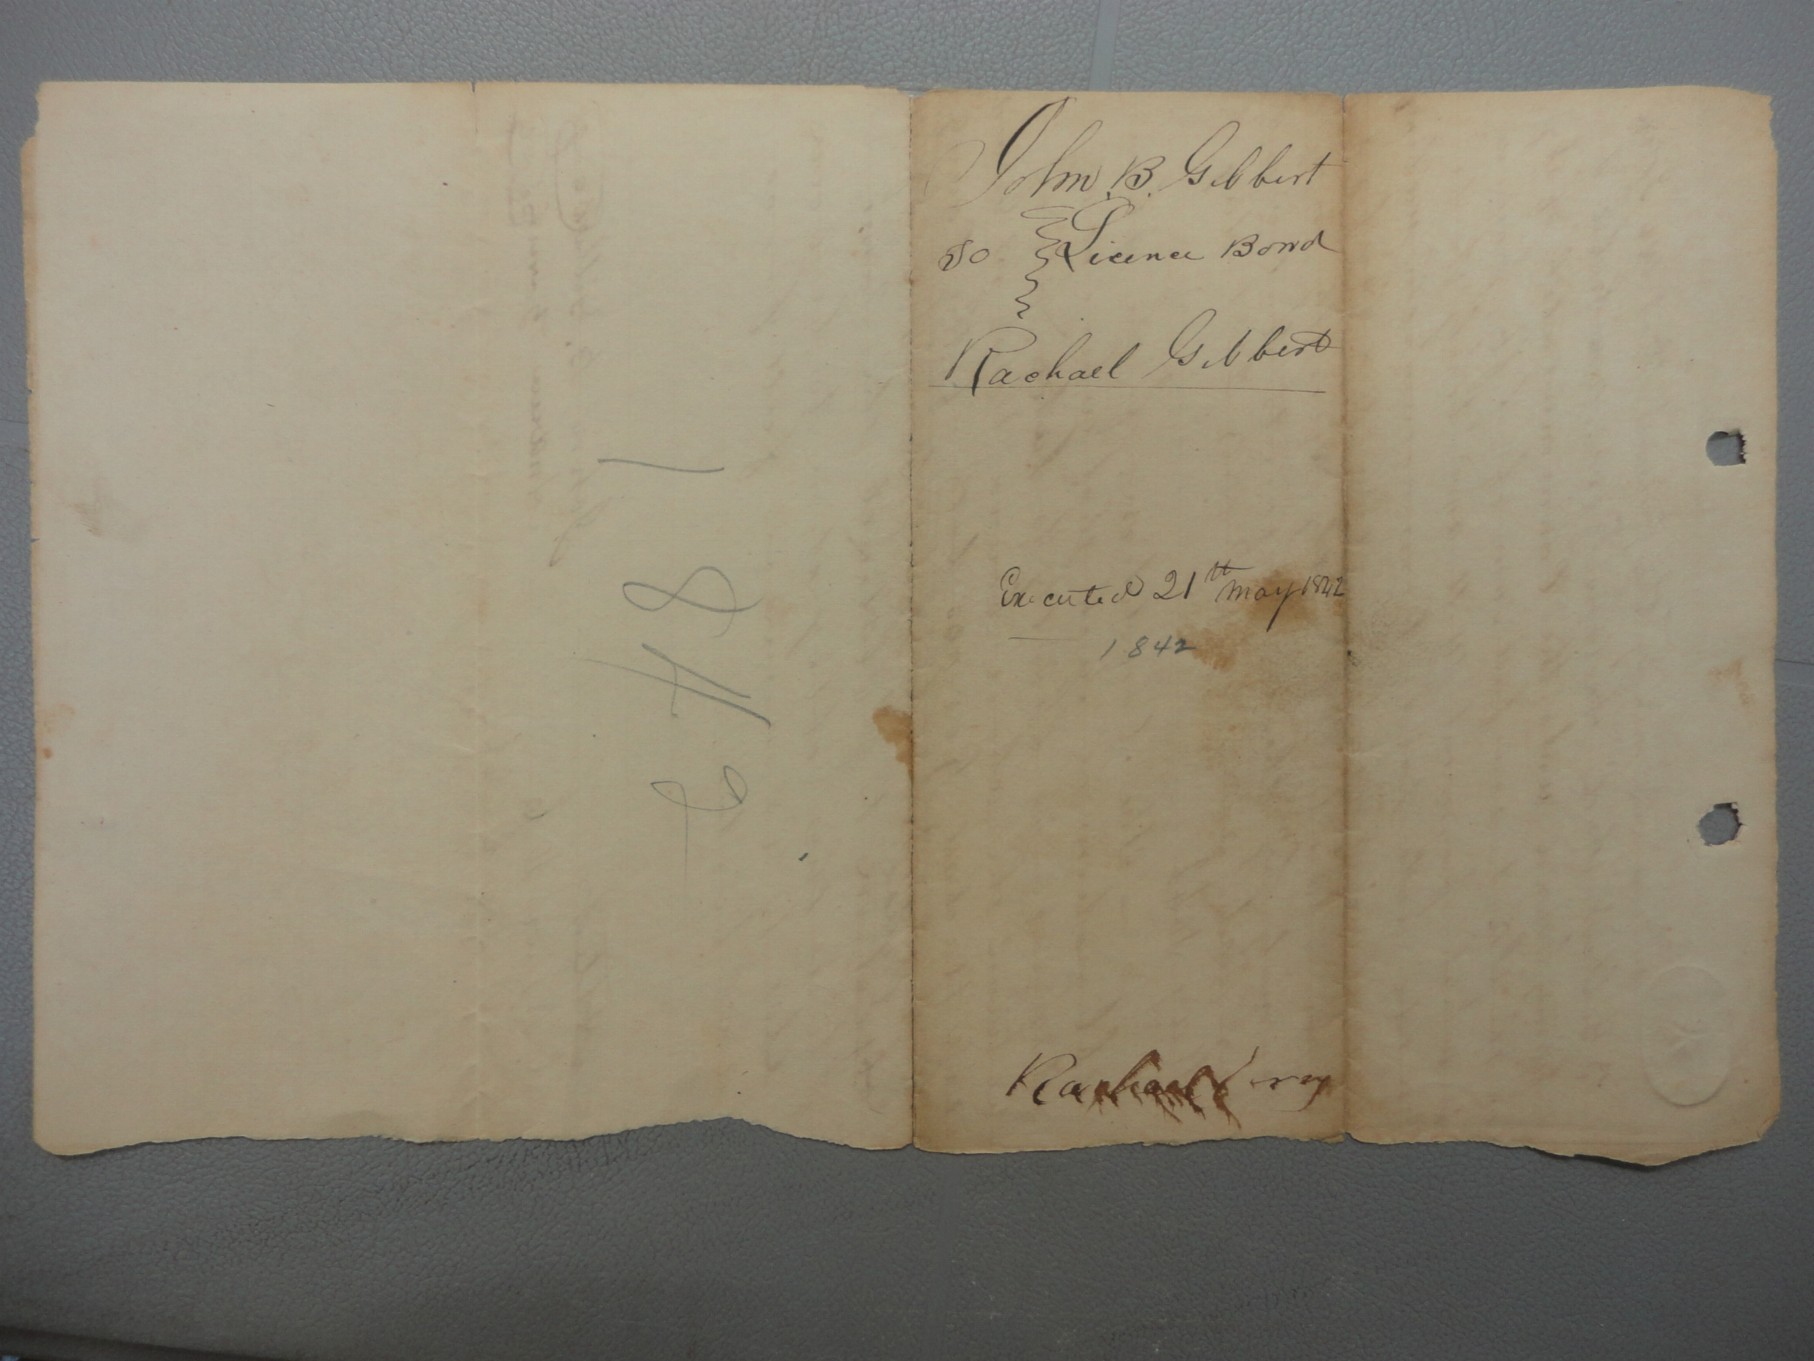 John B. Gibbert
To Licence Bond
Rachael Gibbert
Executed 21th May 1842
1842
Rachael
1842